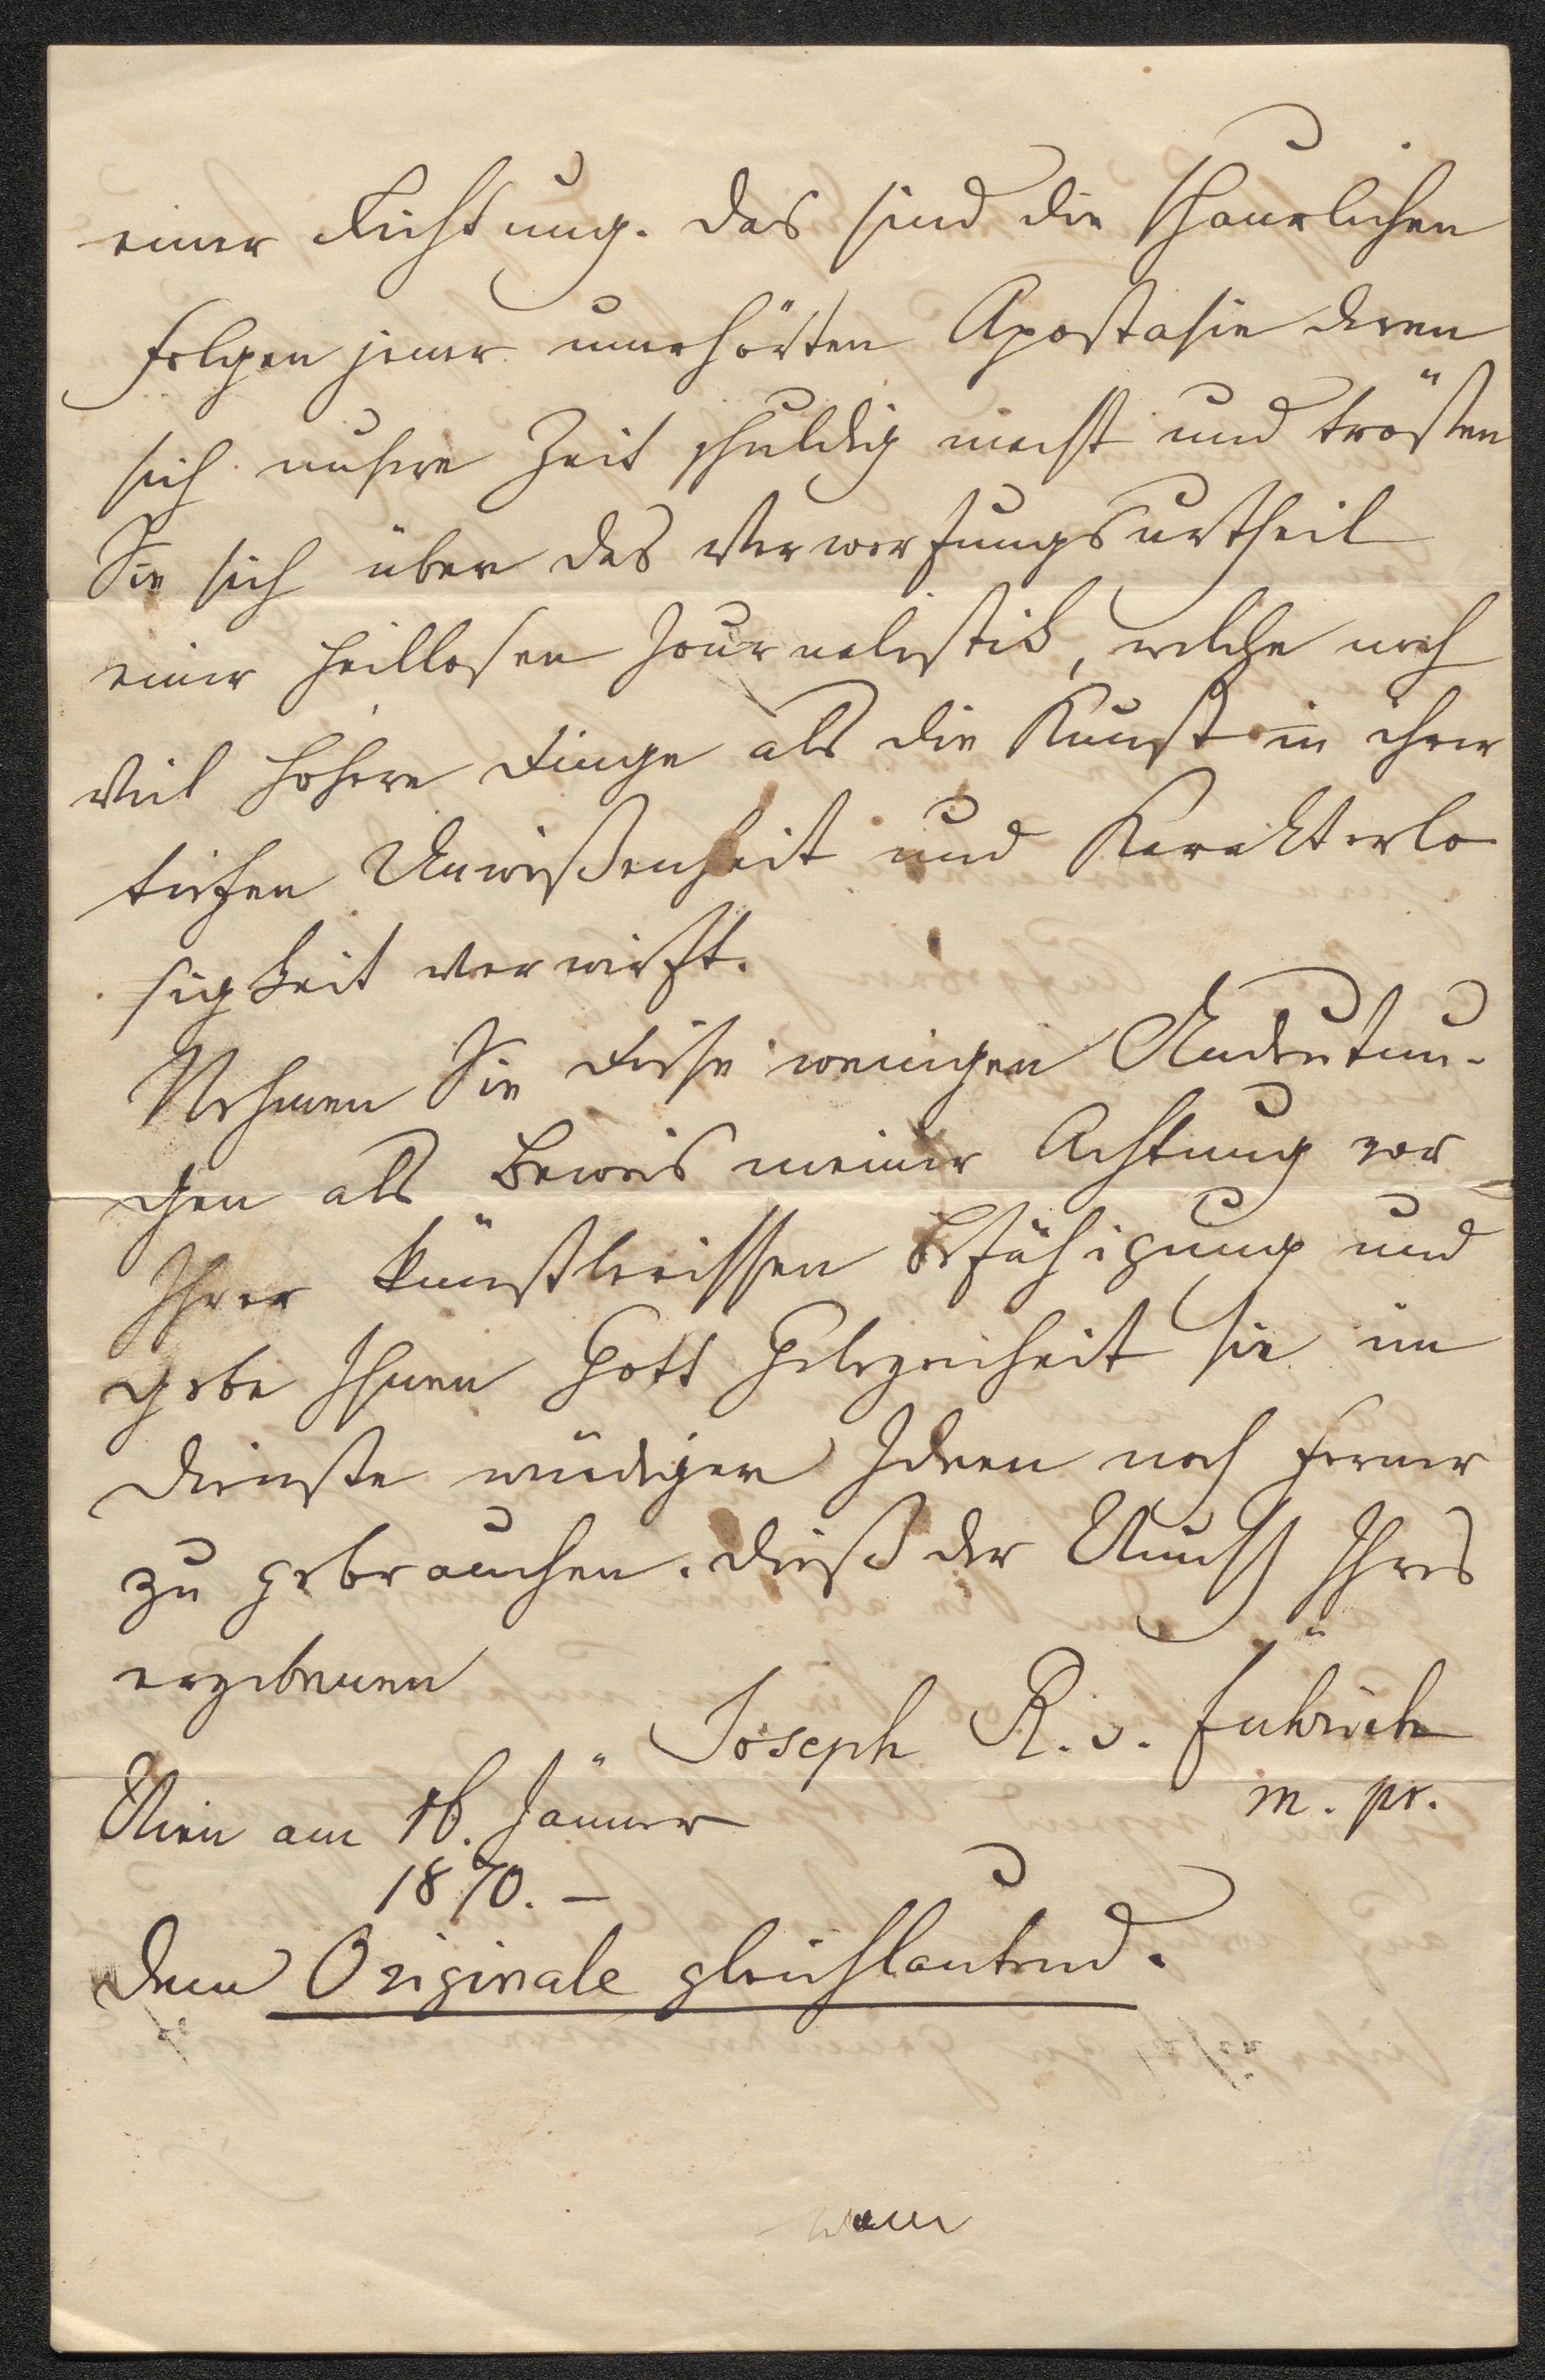 einer Richtung. Das sind die schaurlichen
Folgen jener unerhörten Apostasie deren
sich unsere Zeit schuldig macht und trösten
Sie sich über das Verwerfungsurtheil
einer heillosen Journalistik, welche noch
viel höhere Dinge als die Kunst in ihrer
tiefen Unwißenheit und Karakterlo
sigkeit verwirft.
Nehmen Sie diese wenigen Andeutun-
gen als Beweis meiner Achtung vor
Ihrer künstlerischen Befähigung und
gebe Ihnen Gott Gelegenheit sie im
Dienste würdiger Ideen noch ferner
zu gebrauchen. Dieß der Wunsch Ihres
ergebenen
Joseph R. v. Führich
m. pr.
Wien am 16. Jänner
1870. –
Dem Originale gleichlautend.